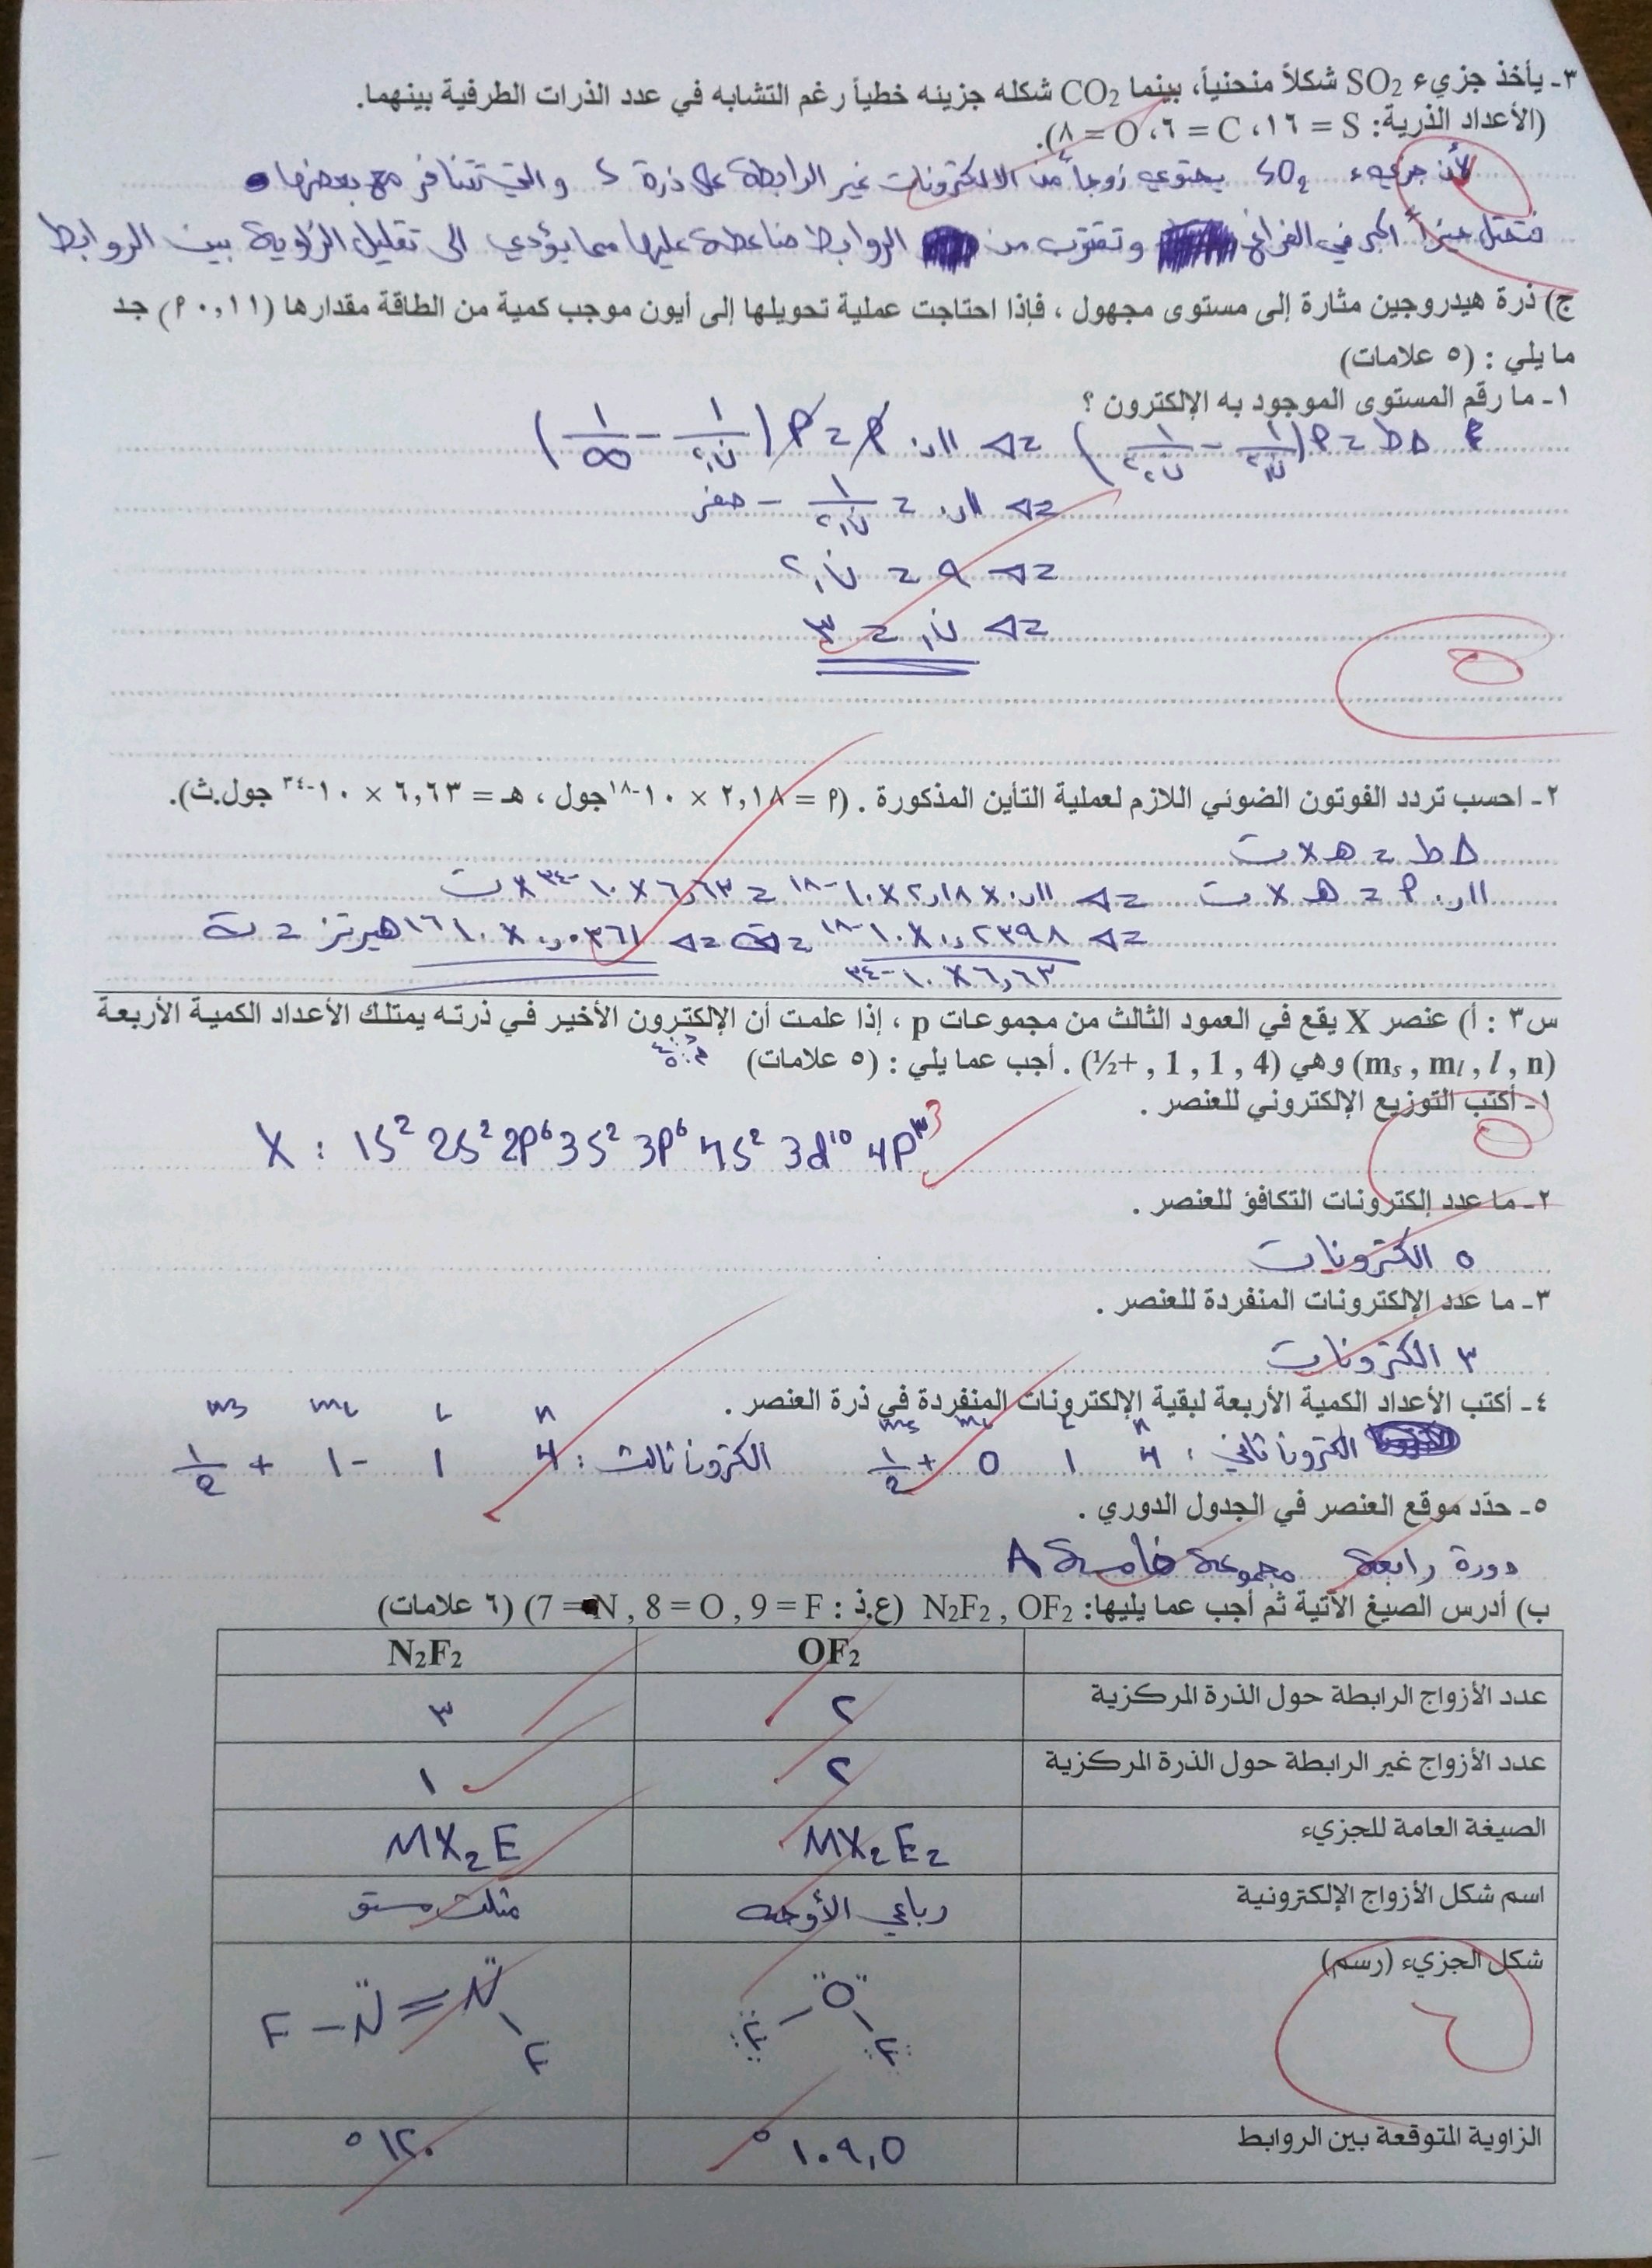 ٣- يأخذ جزيء SO₂ شكلاً منحنياً، بينما CO₂ شكله جزيئه خطياً رغم التشابه في عدد الذرات الطرفية بينهما.
(الأعداد الذرية: S = ١٦، C = ٦، O = ٨).
لأن جزيء SO₂ يحتوي زوجاً من الالكترونات غير الرابطة على ذرة S والتي تتنافر مع بعضها
فتحتل حيزاً أكبر في الفراغ وتقترب من الروابط ضاغطة عليها مما يؤدي الى تقليل الزاوية بين الروابط
ج) ذرة هيدروجين مثارة إلى مستوى مجهول ، فإذا احتاجت عملية تحويلها إلى أيون موجب كمية من الطاقة مقدارها (٠,١١ أ) جد
ما يلي : (٥ علامات)
١- ما رقم المستوى الموجود به الإلكترون ؟
Δط = أ(١/ن₁٢ - ١/ن₂٢) => ٠,١١ أ = أ(١/ن₁٢ - ١/∞)
=> ٠,١١ = ١/ن₁٢ - صفر
=> ٩ = ن₁٢
=> ن₁ = ٣
٥
٢- احسب تردد الفوتون الضوئي اللازم لعملية التأين المذكورة . (أ = ٢,١٨ × ١٠-١٨ جول ، هـ = ٦,٦٣ × ١٠-٣٤ جول.ث).
Δط = هـ × ت
٠,١١ أ = هـ × ت => ٠,١١ × ٢,١٨ × ١٠-١٨ = ٦,٦٣ × ١٠-٣٤ × ت
=> ٠,٢٣٩٨ × ١٠-١٨ / ٦,٦٣ × ١٠-٣٤ = ت => ٠,٠٣٦١ × ١٠١٦ هيرتز = ت
س٣ : أ) عنصر X يقع في العمود الثالث من مجموعات p ، إذا علمت أن الإلكترون الأخير في ذرته يمتلك الأعداد الكمية الأربعة
(mₛ , mₗ , l , n) وهي (4 , 1 , 1 , +½) . أجب عما يلي : (٥ علامات)
١- أكتب التوزيع الإلكتروني للعنصر .
٥
X : 1S² 2S² 2P⁶ 3S² 3P⁶ 4S² 3d¹⁰ 4P³ 3
٢- ما عدد إلكترونات التكافؤ للعنصر .
٥ الكترونات
٣- ما عدد الإلكترونات المنفردة للعنصر .
٣ الكترونات
٤- أكتب الأعداد الكمية الأربعة لبقية الإلكترونات المنفردة في ذرة العنصر .
n L mL ms n L mL ms
الكترون ثاني : 4 1 0 +1/2 الكترون ثالث : 4 1 -1 +1/2
٥- حدّد موقع العنصر في الجدول الدوري .
دورة رابعة مجموعة خامسة A
ب) أدرس الصيغ الآتية ثم أجب عما يليها: N₂F₂ , OF₂ (ع.ذ : 7 = N , 8 = O , 9 = F) (٦ علامات)
OF₂ N₂F₂
عدد الأزواج الرابطة حول الذرة المركزية ٢ ٣
عدد الأزواج غير الرابطة حول الذرة المركزية ٢ ١
الصيغة العامة للجزيء MX₂E₂ MX₂E
اسم شكل الأزواج الإلكترونية رباعي الأوجه مثلث مستو
شكل الجزيء (رسم) F O F F - N = N F
٦
الزاوية المتوقعة بين الروابط ١٠٩,٥° ١٢٠°